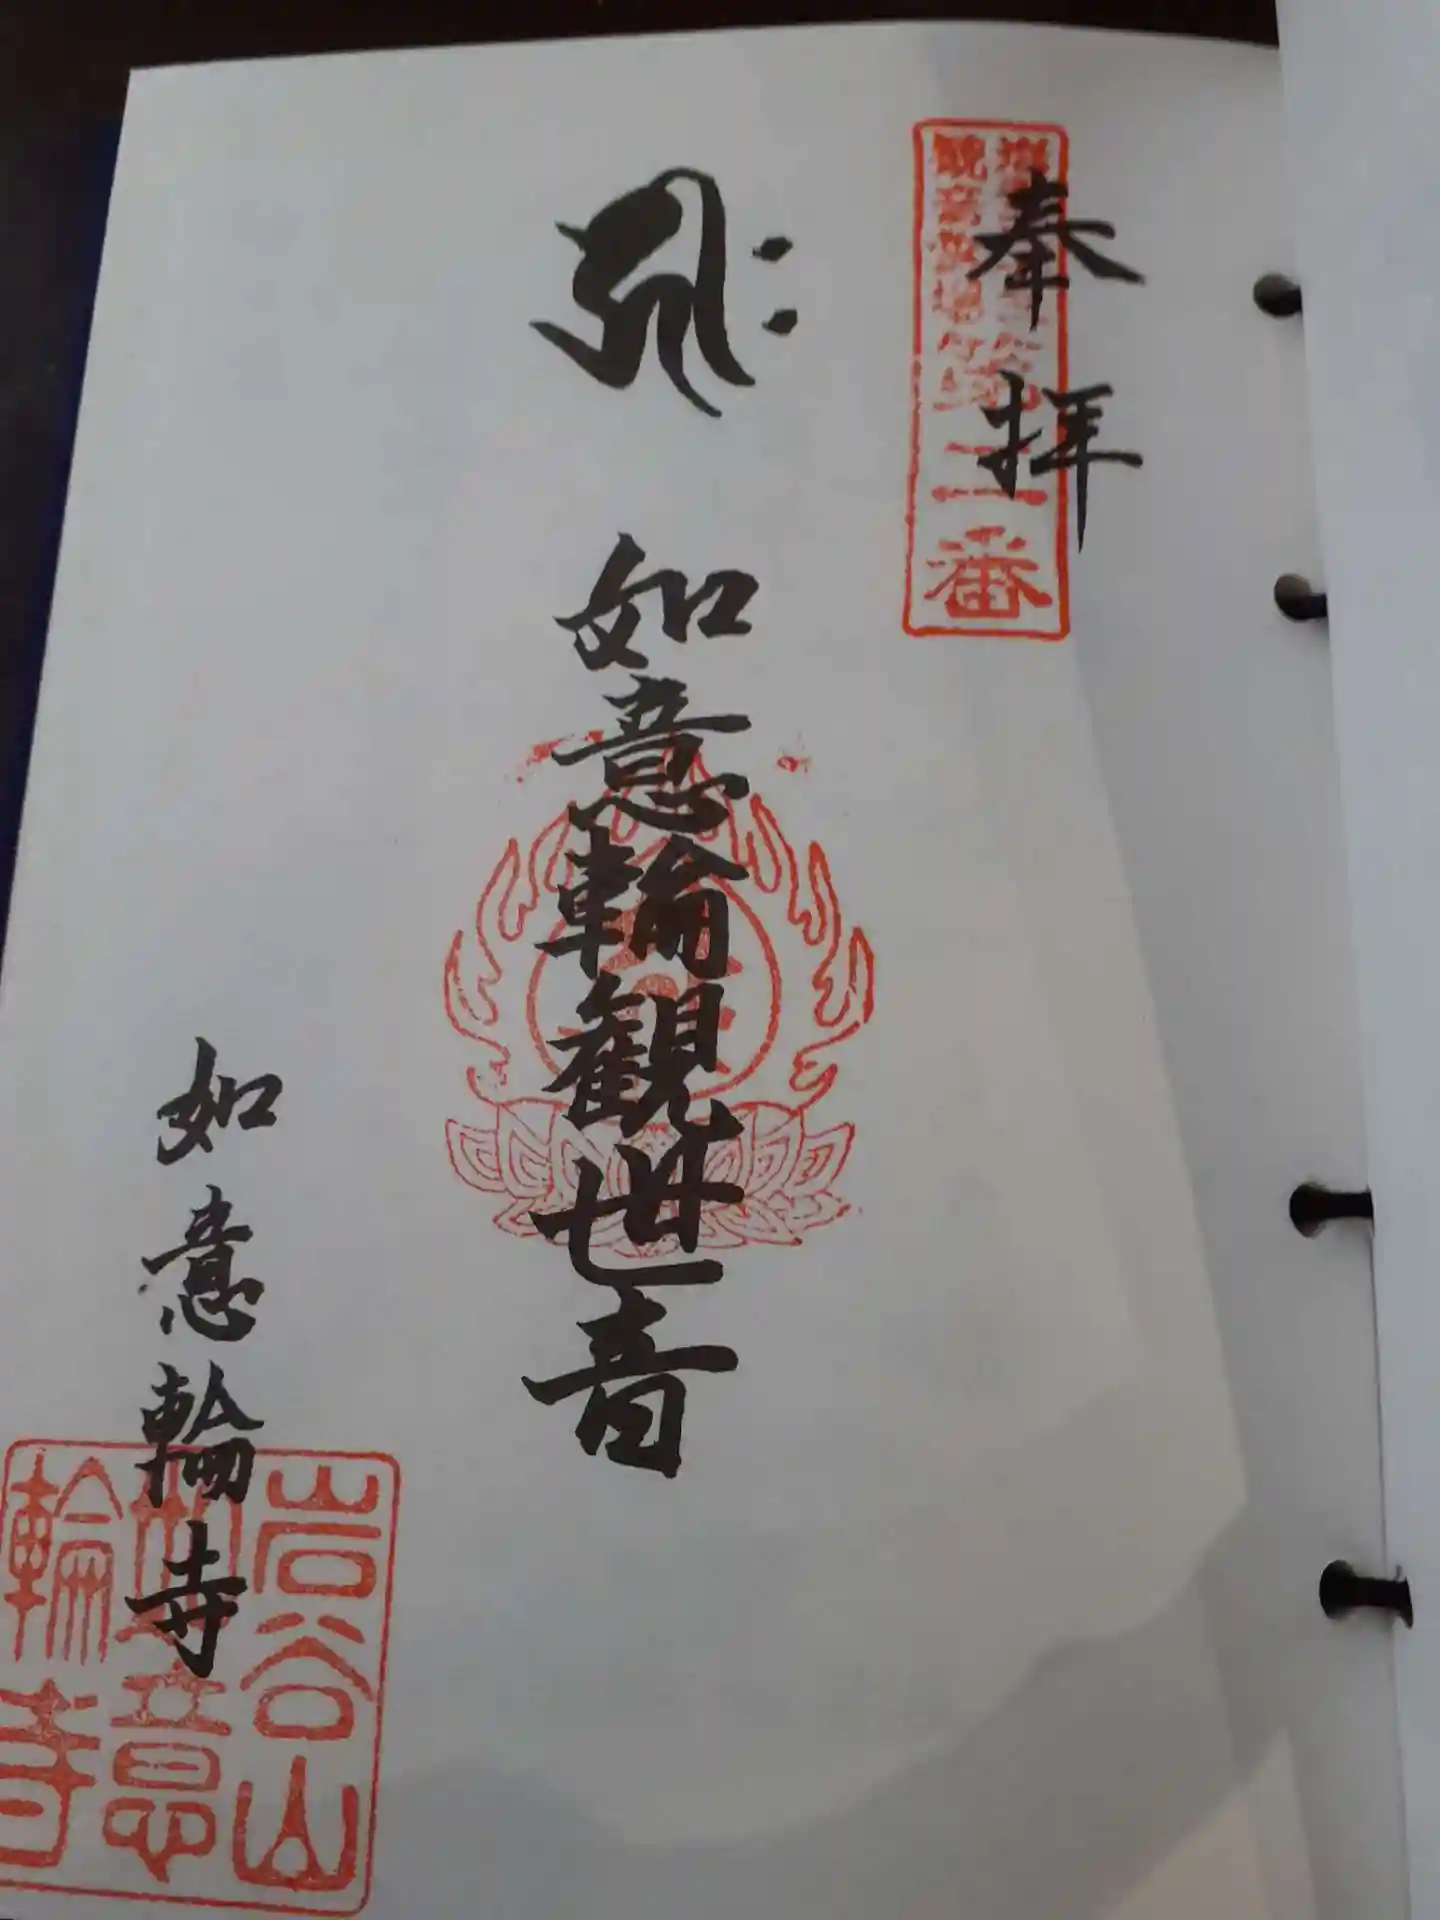 奉拝
第二番
如意輪観世音
如意輪寺
岩谷山
如意
輪寺